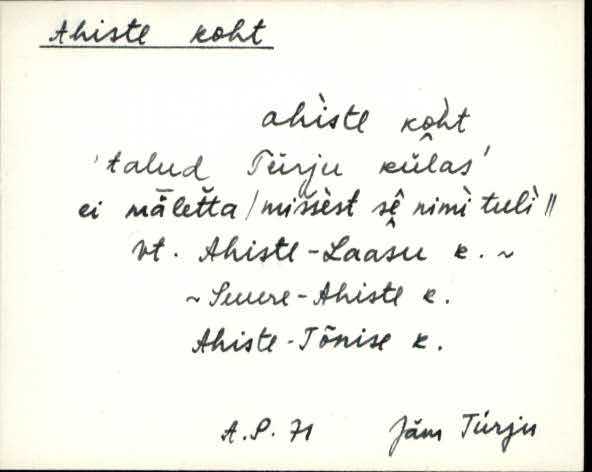 Ahiste koht
ahìste kò͔ht
'talud Türju külas'
ei mäletta / missèst sê nimì tulì ||
vt. Ahiste-Laasu k. ~
~ Suure-Ahiste k.
Ahiste-Tõnise k.
A.P. 71 Jäm Türju